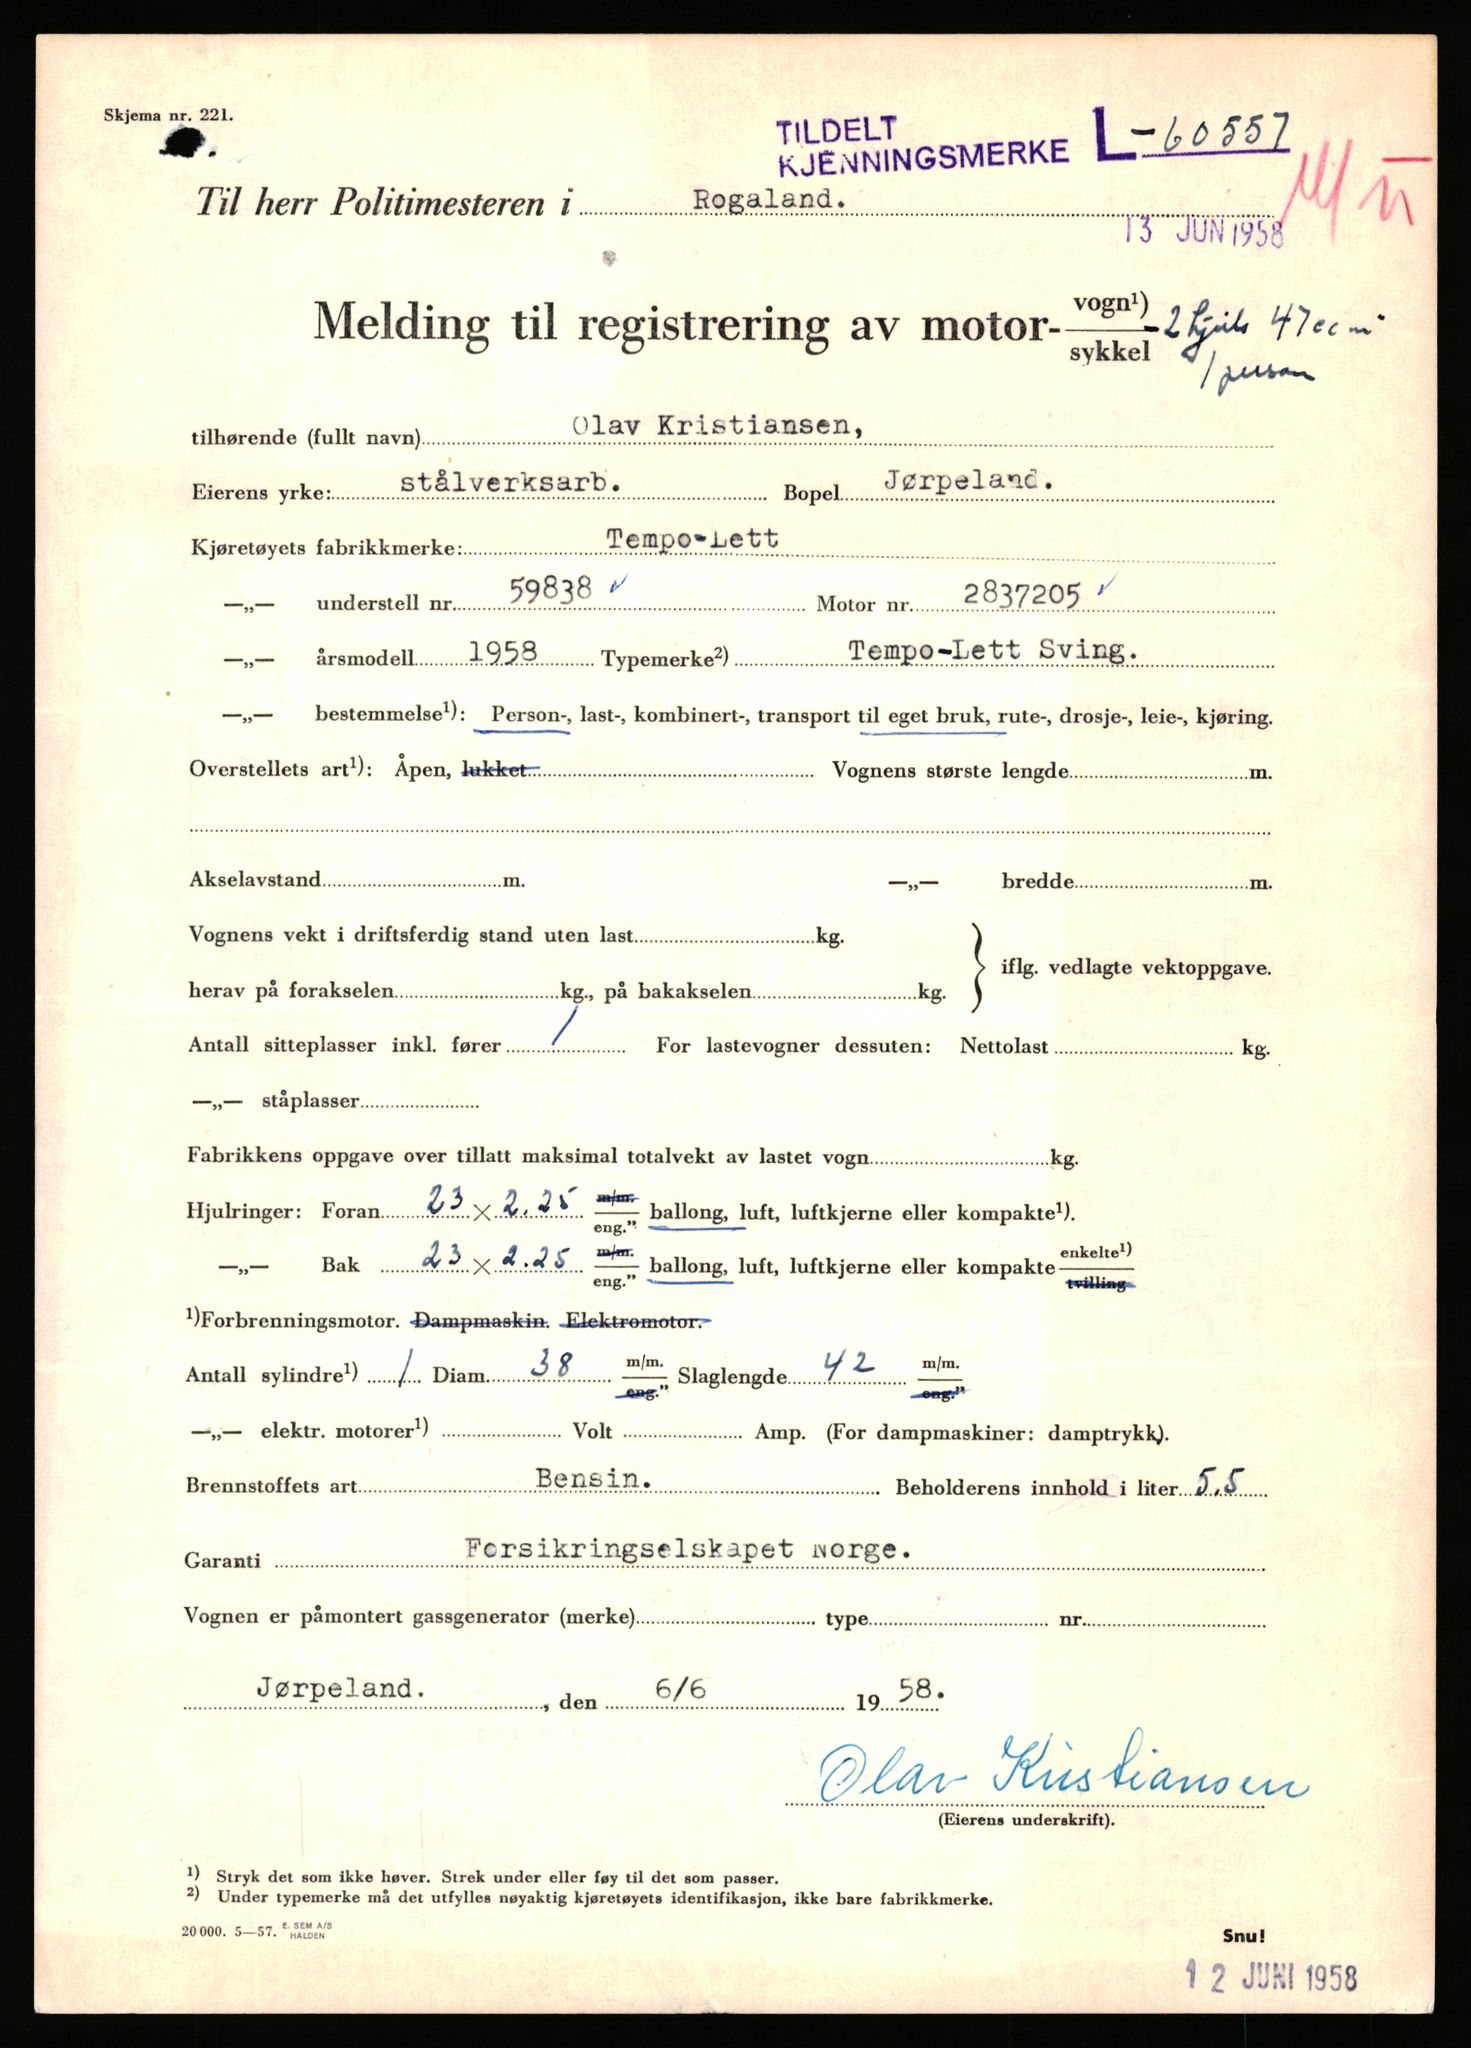 Skjema nr. 221.
TILDELT
KJENNINGSMERKE L-60557
Til herr Politimesteren i Rogaland.
13 JUN 1958
Melding til registrering av motor- vogn¹) / sykkel - 2 hjuls 47 ccm
1 person
tilhørende (fullt navn) Olav Kristiansen,
Eierens yrke: stålverksarb. Bopel Jørpeland.
Kjøretøyets fabrikkmerke: Tempo-Lett
—„— understell nr. 59838 ✓ Motor nr. 2837205 ✓
—„— årsmodell 1958 Typemerke²) Tempo-Lett Sving.
—„— bestemmelse¹): Person-, last-, kombinert-, transport til eget bruk, rute-, drosje-, leie-, kjøring.
Overstellets art¹): Åpen, lukket Vognens største lengde m.
Akselavstand m. —„— bredde m.
Vognens vekt i driftsferdig stand uten last kg.
iflg. vedlagte vektoppgave.
herav på forakselen kg., på bakakselen kg.
Antall sitteplasser inkl. fører 1 For lastevogner dessuten: Nettolast kg.
—„— ståplasser
Fabrikkens oppgave over tillatt maksimal totalvekt av lastet vogn kg.
Hjulringer: Foran 23 × 2.25 m/m. / eng.” ballong, luft, luftkjerne eller kompakte¹).
—„— Bak 23 × 2.25 m/m. / eng.” ballong, luft, luftkjerne eller kompakte enkelte¹) / tvilling
¹)Forbrenningsmotor. Dampmaskin. Elektromotor.
Antall sylindre¹) 1 Diam. 38 m/m. / eng.” Slaglengde 42 m/m. / eng.”
—„— elektr. motorer¹) Volt Amp. (For dampmaskiner: damptrykk).
Brennstoffets art Bensin. Beholderens innhold i liter 5.5
Garanti Forsikringselskapet Norge.
Vognen er påmontert gassgenerator (merke) type nr.
Jørpeland., den 6/6 1958.
Olav Kristiansen
(Eierens underskrift).
¹) Stryk det som ikke høver. Strek under eller føy til det som passer.
²) Under typemerke må det utfylles nøyaktig kjøretøyets identifikasjon, ikke bare fabrikkmerke.
20 000. 5—57. E. SEM A/S HALDEN
Snu!
12 JUNI 1958